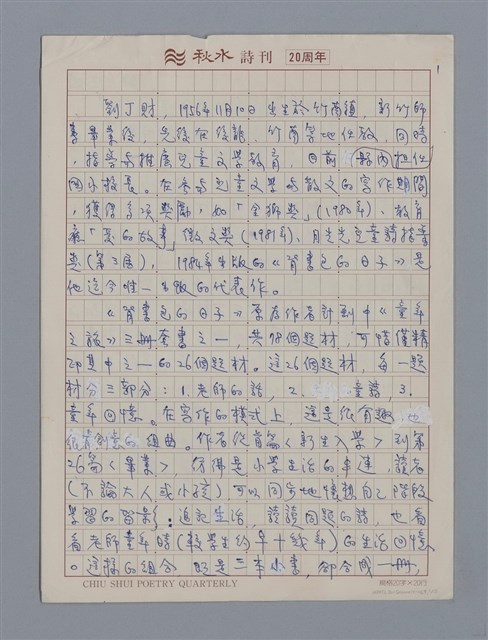 秋水詩刊 20周年
1
劉丁財，1956年11月10日出生於竹南鎮，新竹師
專畢業後，先後在後龍、竹南等地任教，同時
，指導與推廣兒童文學教育，目前 擔任
國小教裏。在香與兒童文學與散文的寫作期間
，獲得多項獎勵，如「金獅獎」(1980年)、教育
廳「愛的故事」徵文獎(1981年)、月光光兒童詩指導
獎(第三屆)，1984年出版的《背書包的日子》是
他迄今唯一出版的代表作。
《背書包的日子》原為作者計劃中《童年
之旅》三冊套書之一，共78個題材，可惜僅精
印其中之一的26個題材。這26個題材，每一題
材分三部分：1.老師的話，2. 童詩，3.
童年回憶。在寫作的模式上，這是很有趣、也
很有創意的組曲。作者從首篇〈新生入學〉到第
26篇〈畢業〉，彷彿是小學生活的串連，讀者
(不論大人或小孩)可以同步地
學習的：追記生活，讀讀同題的詩，也看
看老師童年時(較學生約早十幾年)的生活回憶
。這樣的組合，既是三本小書，卻合成一冊，
CHIU SHUI POETRY QUARTERLY
稿紙20字×25行